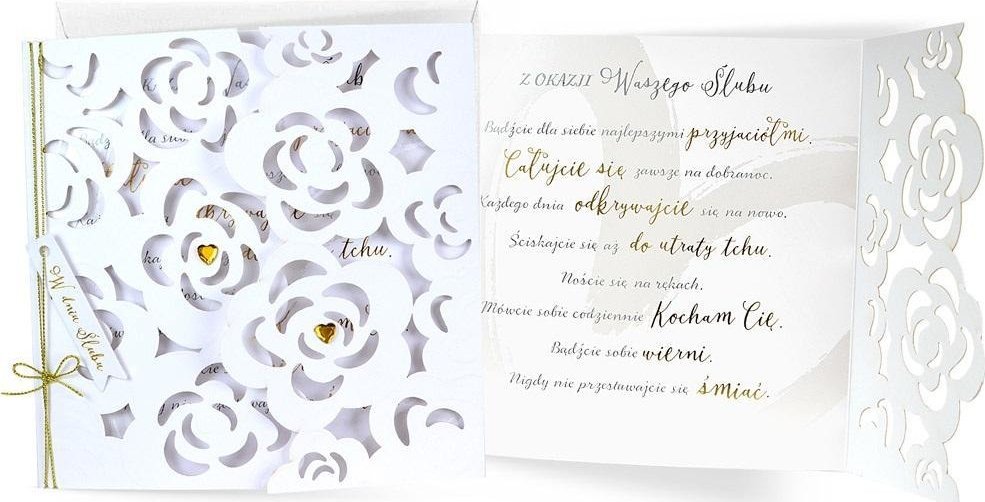 W dniu Ślubu
tchu.
Z OKAZJI Waszego Ślubu
Bądźcie dla siebie najlepszymi przyjaciółmi.
Całujcie się zawsze na dobranoc.
Każdego dnia odkrywajcie się na nowo.
Ściskajcie się aż do utraty tchu.
Noście się na rękach.
Mówcie sobie codziennie Kocham Cię.
Bądźcie sobie wierni.
Nigdy nie przestawajcie się śmiać.